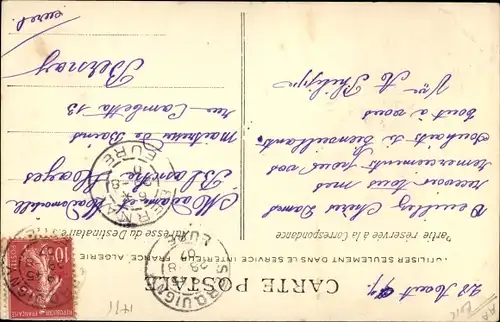 CARTE POSTALE
À UTILISER SEULEMENT DANS LE SERVICE INTÉRIEUR, FRANCE, ALGÉRIE
Partie réservée à la Correspondance
Adresse du Destinataire
28 Août 07
Veuillez Chères Dames
recevoir tous mes
remerciements pour vos
souhaits si bienveillants
tout à vous
Vve A Philippe
Madame et Mademoiselle
Blanche
Maitresse de Bains
rue Gambetta 13
Bernay
eure
SERQUIGNY
EURE
BERNAY
EURE
10
RÉPUBLIQUE FRANÇAISE